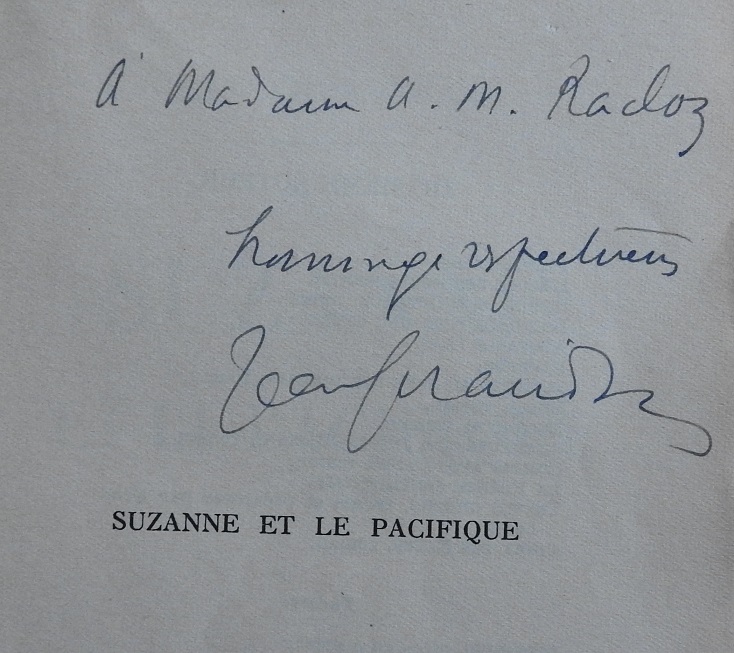 à Madame A. M. Radoz
hommage respectueux
Jean Giraudoux
SUZANNE ET LE PACIFIQUE